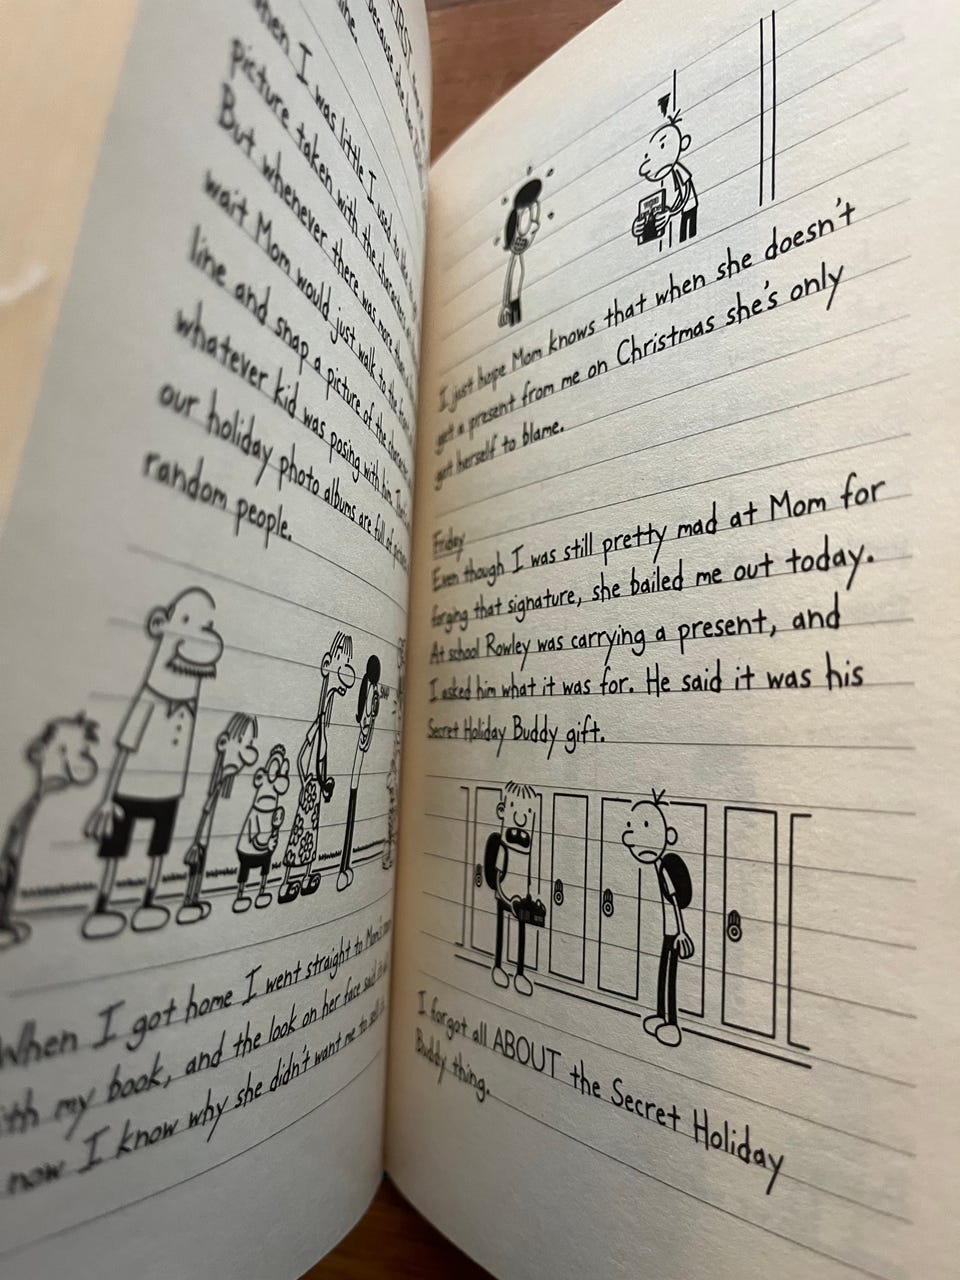 FIRST
because she
line.
when I was little I used to
picture taken with the characters
But whenever there was more than
wait Mom would just walk to the front
line and snap a picture of the character
whatever kid was posing with him.
our holiday photo albums are full of
random people.
When I got home I went straight to Mom's
with my book, and the look on her face said it
now I know why she didn't want me to
I just hope Mom knows that when she doesn't
get a present from me on Christmas she's only
got herself to blame.
Friday
Even though I was still pretty mad at Mom for
forging that signature, she bailed me out today.
At school Rowley was carrying a present, and
I asked him what it was for. He said it was his
Secret Holiday Buddy gift.
I forgot all ABOUT the Secret Holiday
Buddy thing.